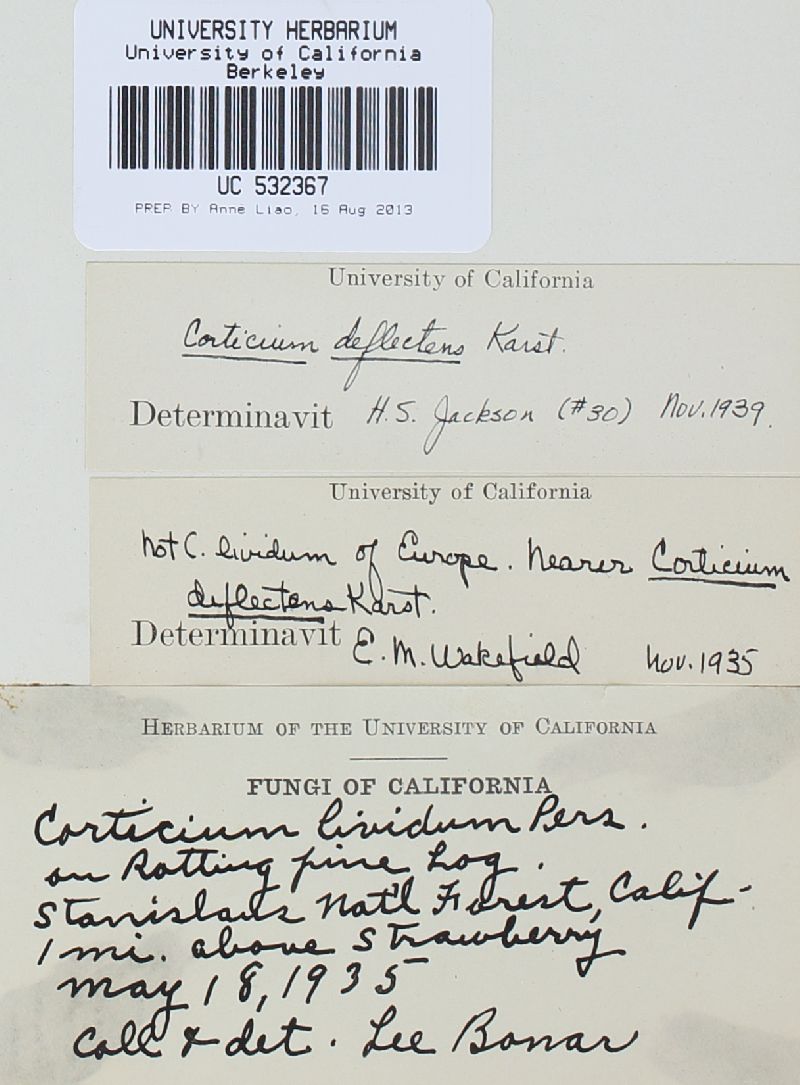 UNIVERSITY HERBARIUM
University of California
Berkeley
UC 532367
PREP. BY Anne Liao, 16 Aug 2013
University of California
Corticium deflectens Karst.
Determinavit H. S. Jackson (#30) Nov. 1939.
University of California
Not C. lividum of Europe. Nearer Corticium
deflectens Karst.
Determinavit E. M. Wakefield Nov. 1935
HERBARIUM OF THE UNIVERSITY OF CALIFORNIA
FUNGI OF CALIFORNIA
Corticium lividum Pers.
on Rotting pine Log.
Stanislaus Nat'l Forest, Calif.
1 mi. above Strawberry
May 18, 1935
Coll & det. Lee Bonar